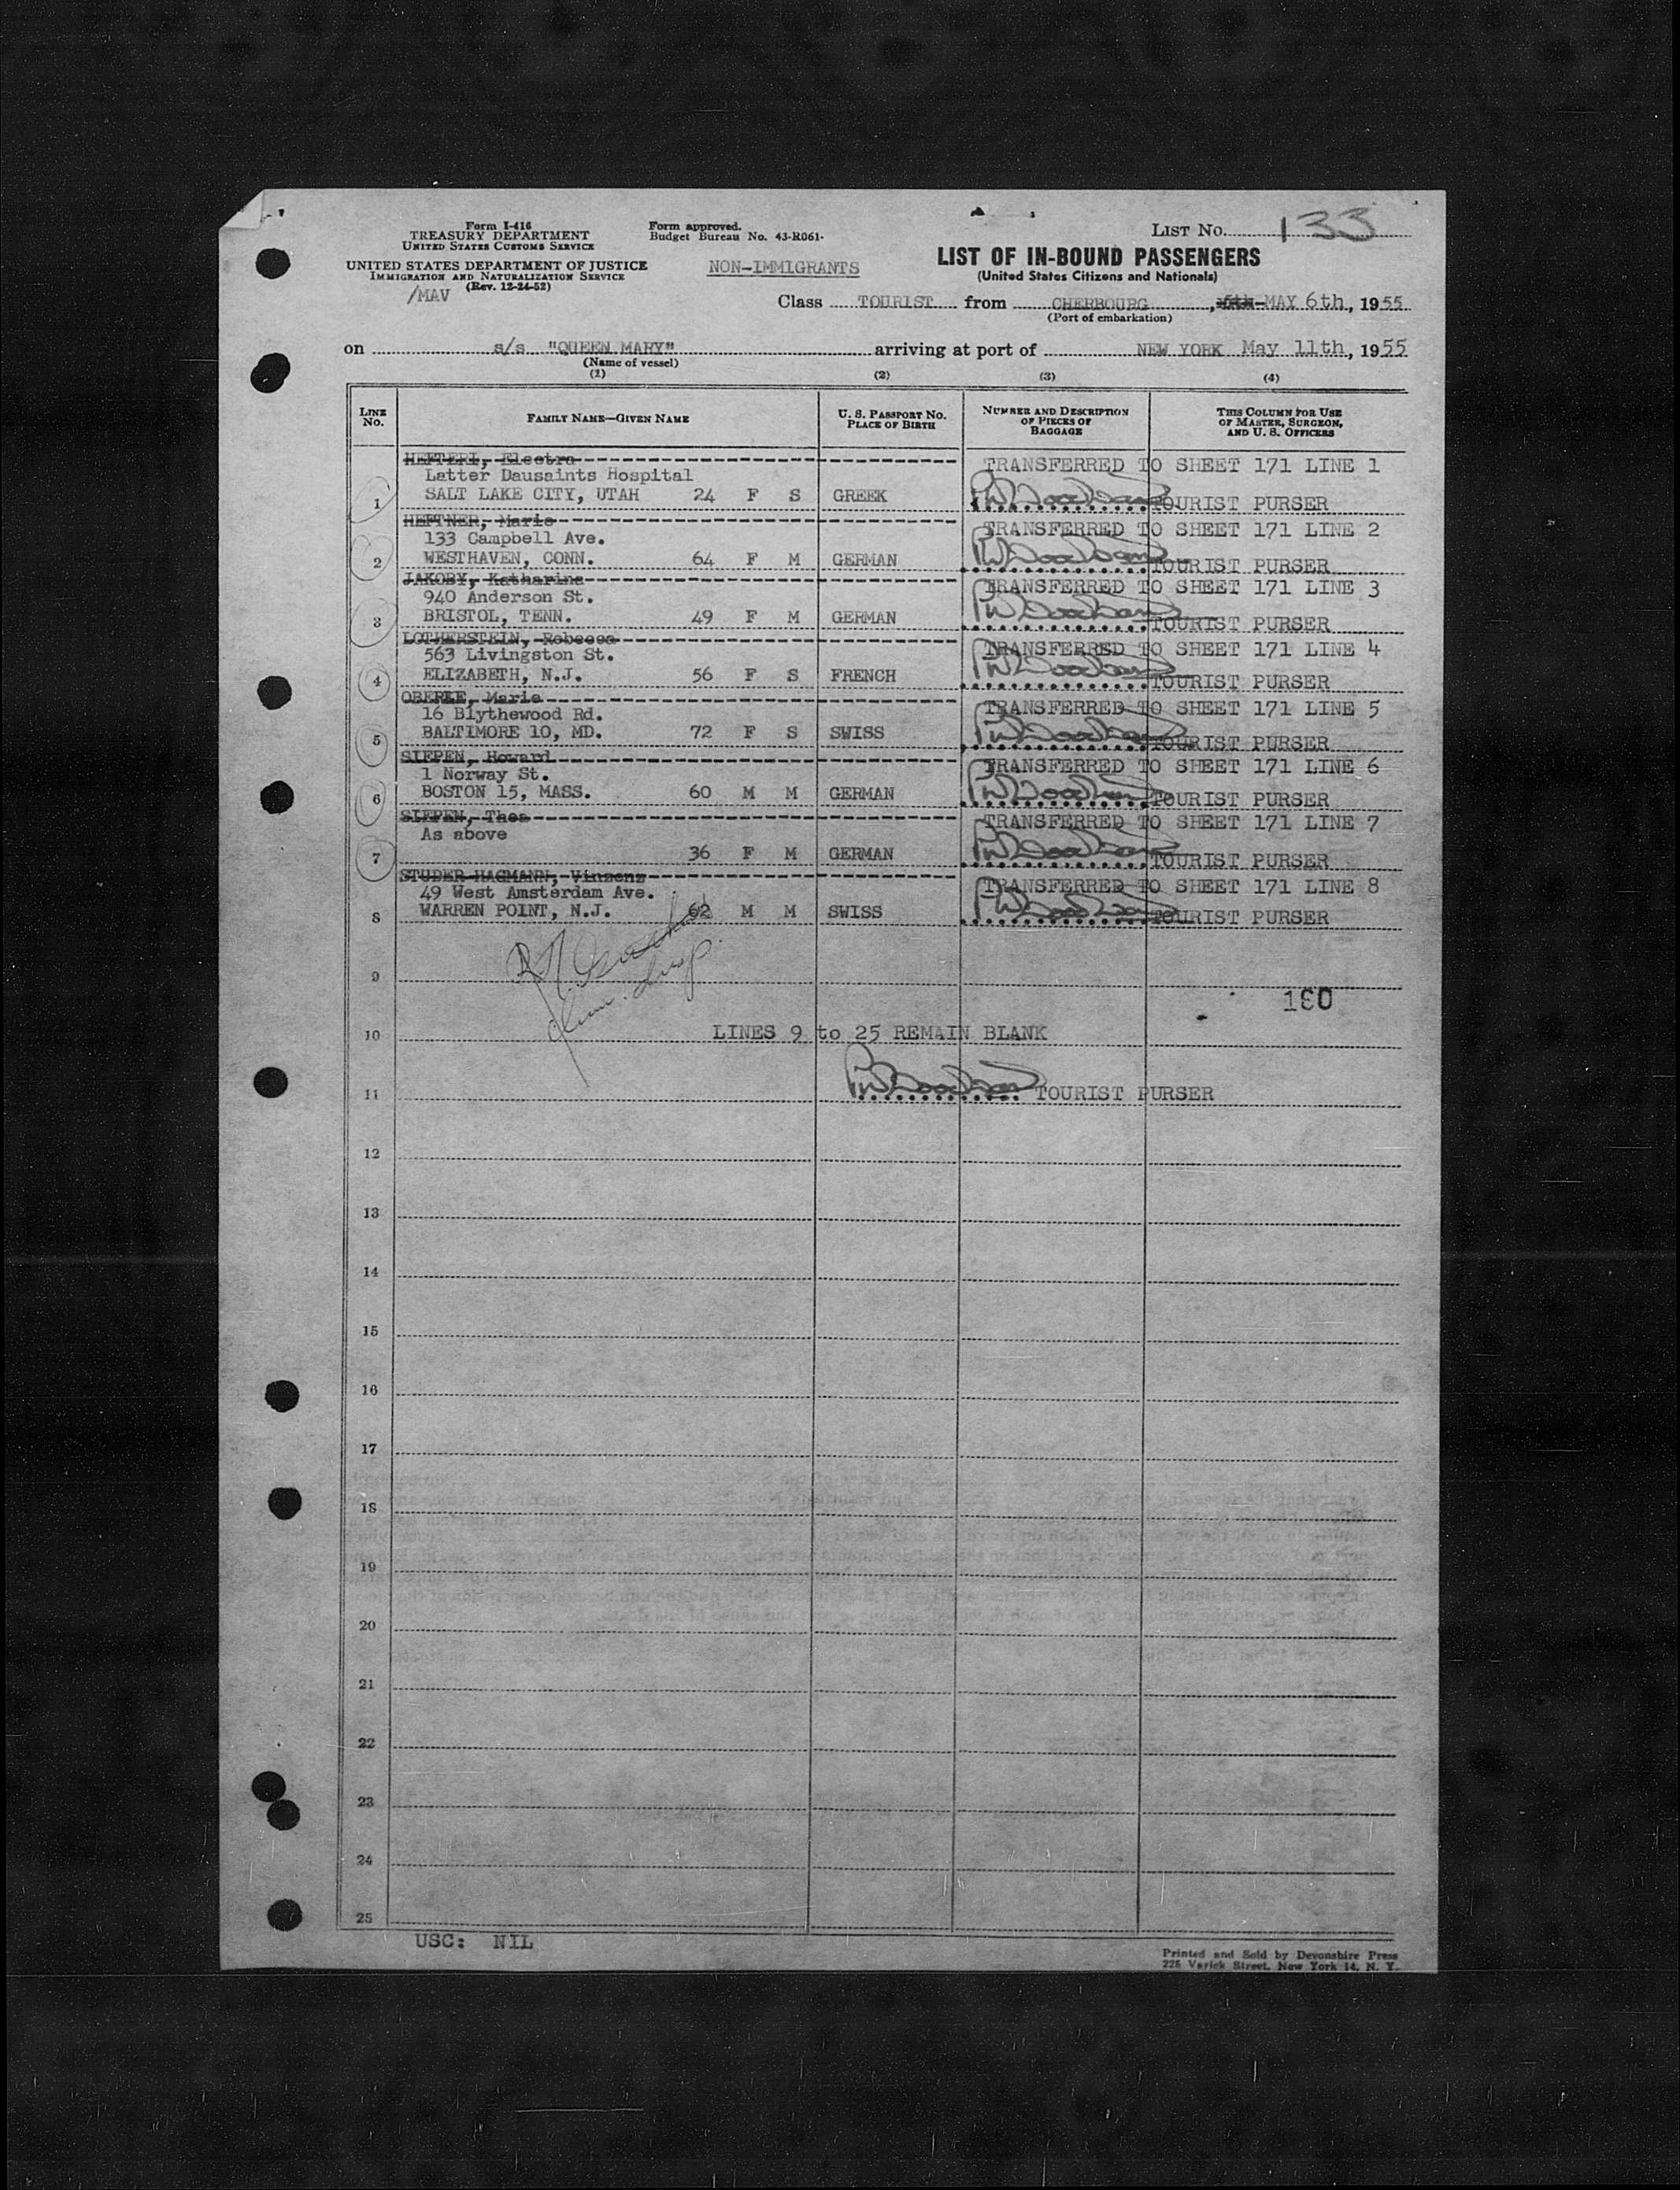 Form I-416
TREASURY DEPARTMENT
UNITED STATES CUSTOMS SERVICE
UNITED STATES DEPARTMENT OF JUSTICE
IMMIGRATION AND NATURALIZATION SERVICE
(Rev. 12-24-52)
/MAV
Form approved.
Budget Bureau No. 43-R061-
NON-IMMIGRANTS
LIST NO. 133
LIST OF IN-BOUND PASSENGERS
(United States Citizens and Nationals)
Class TOURIST from CHERBOURG, MAY 6th, 1955
(Port of embarkation)
on s/s "QUEEN MARY" arriving at port of NEW YORK May 11th, 1955
(Name of vessel)
(1) (2) (3) (4)
LINE No. FAMILY NAME—GIVEN NAME U. S. PASSPORT NO. PLACE OF BIRTH NUMBER AND DESCRIPTION OF PIECES OF BAGGAGE THIS COLUMN FOR USE OF MASTER, SURGEON, AND U. S. OFFICERS
HEFTERI, Electra TRANSFERRED TO SHEET 171 LINE 1
Latter Dausaints Hospital
1 SALT LAKE CITY, UTAH 24 F S GREEK TOURIST PURSER
HEFTNER, Marie TRANSFERRED TO SHEET 171 LINE 2
133 Campbell Ave.
2 WESTHAVEN, CONN. 64 F M GERMAN TOURIST PURSER
JAKOBY, Katharina TRANSFERRED TO SHEET 171 LINE 3
940 Anderson St.
3 BRISTOL, TENN. 49 F M GERMAN TOURIST PURSER
LOTHERSTEIN, Rebecca TRANSFERRED TO SHEET 171 LINE 4
563 Livingston St.
4 ELIZABETH, N.J. 56 F S FRENCH TOURIST PURSER
OBERLE, Marie TRANSFERRED TO SHEET 171 LINE 5
16 Blythewood Rd.
5 BALTIMORE 10, MD. 72 F S SWISS TOURIST PURSER
SIEPEN, Howard TRANSFERRED TO SHEET 171 LINE 6
1 Norway St.
6 BOSTON 15, MASS. 60 M M GERMAN TOURIST PURSER
SIEPEN, Thea TRANSFERRED TO SHEET 171 LINE 7
As above
7 36 F M GERMAN TOURIST PURSER
STUDER-HAGMANN, Vinzenz TRANSFERRED TO SHEET 171 LINE 8
49 West Amsterdam Ave.
8 WARREN POINT, N.J. 62 M M SWISS TOURIST PURSER
9
180
10 LINES 9 to 25 REMAIN BLANK
11 TOURIST PURSER
12
13
14
15
16
17
18
19
20
21
22
23
24
25
USC: NIL
Printed and Sold by Devonshire Press
225 Varick Street, New York 14, N. Y.